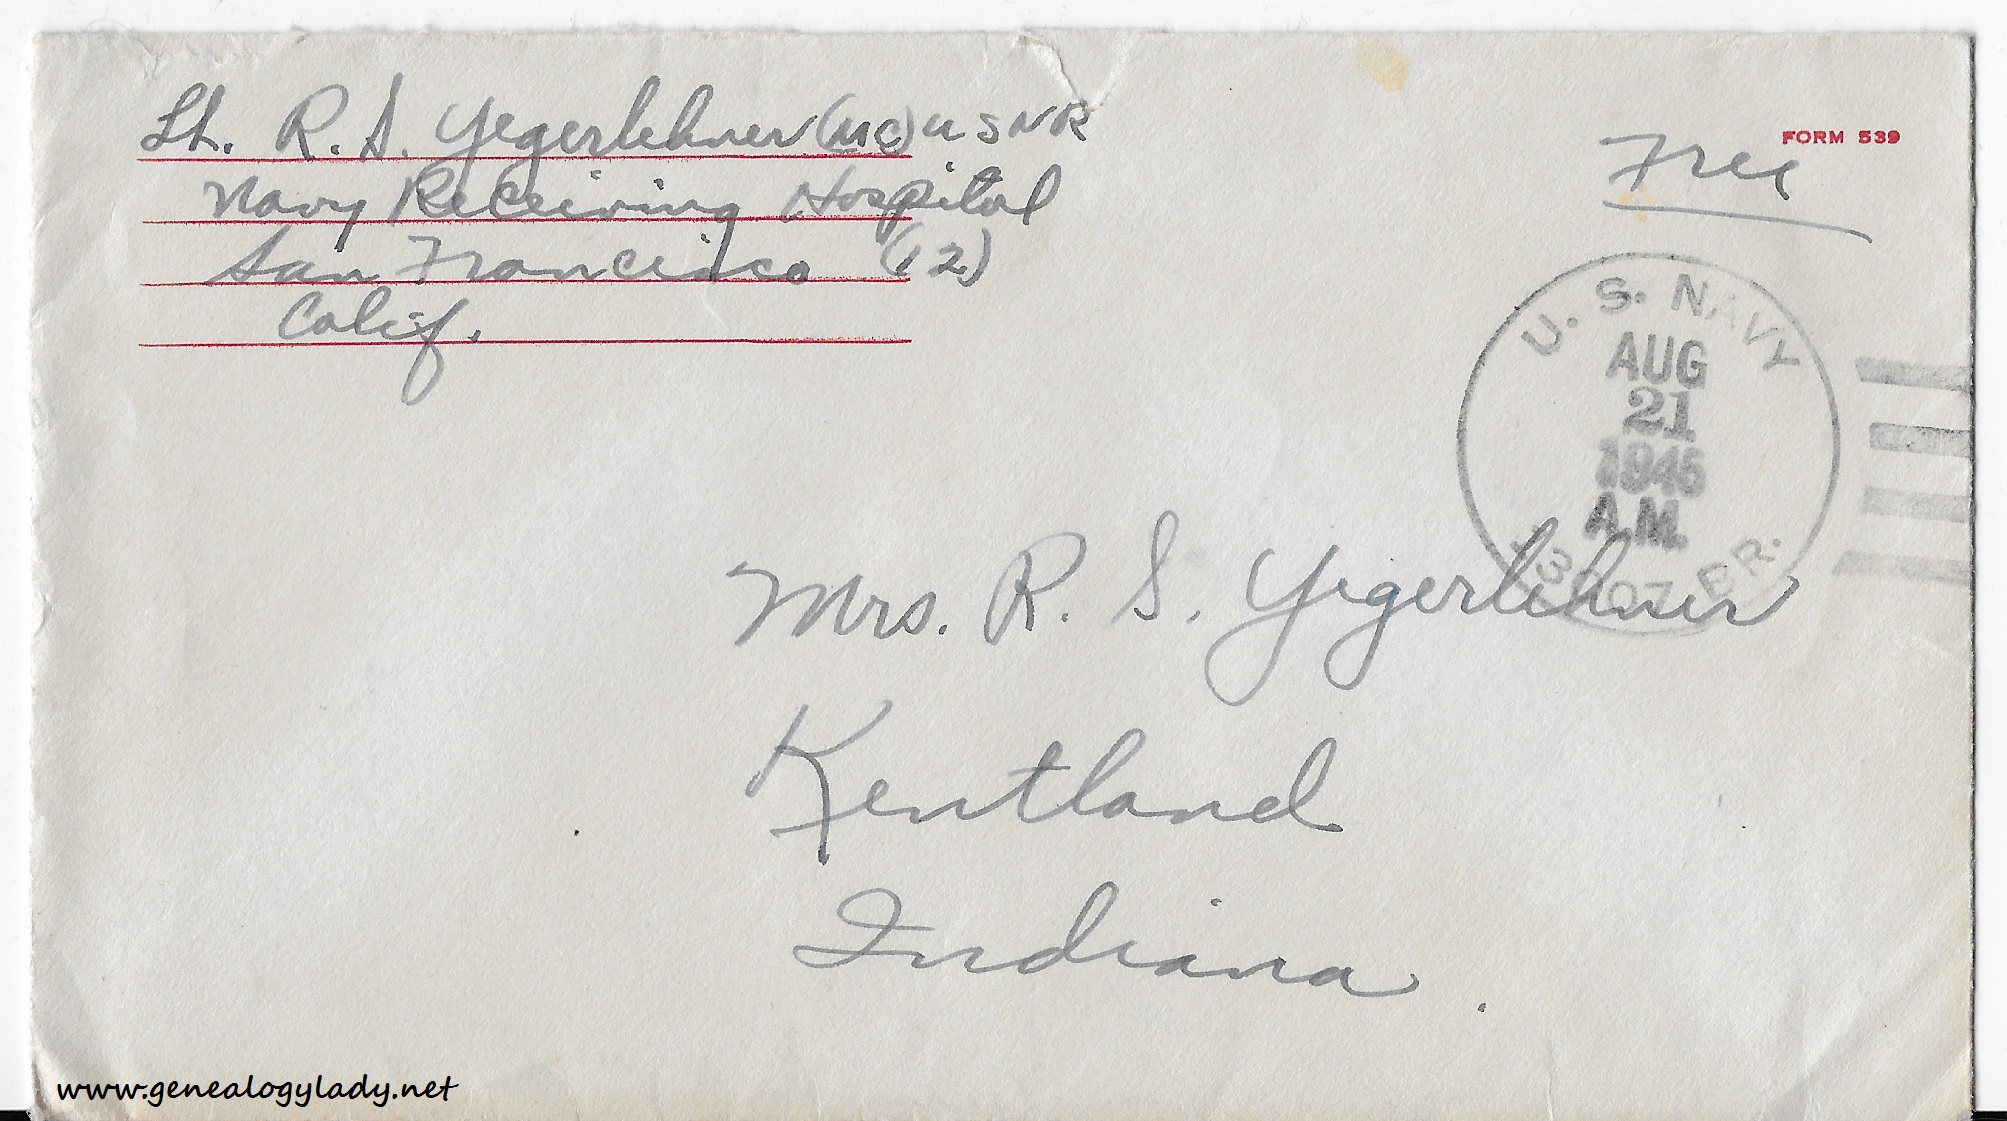 Lt. R. S. Yegerlehner (MC) USNR
Navy Receiving Hospital
San Francisco (12)
Calif.
FORM 539
Free
U. S. NAVY
AUG
21
1945
A.M.
BR.
Mrs. R. S. Yegerlehner
Kentland
Indiana.
www.genealogylady.net